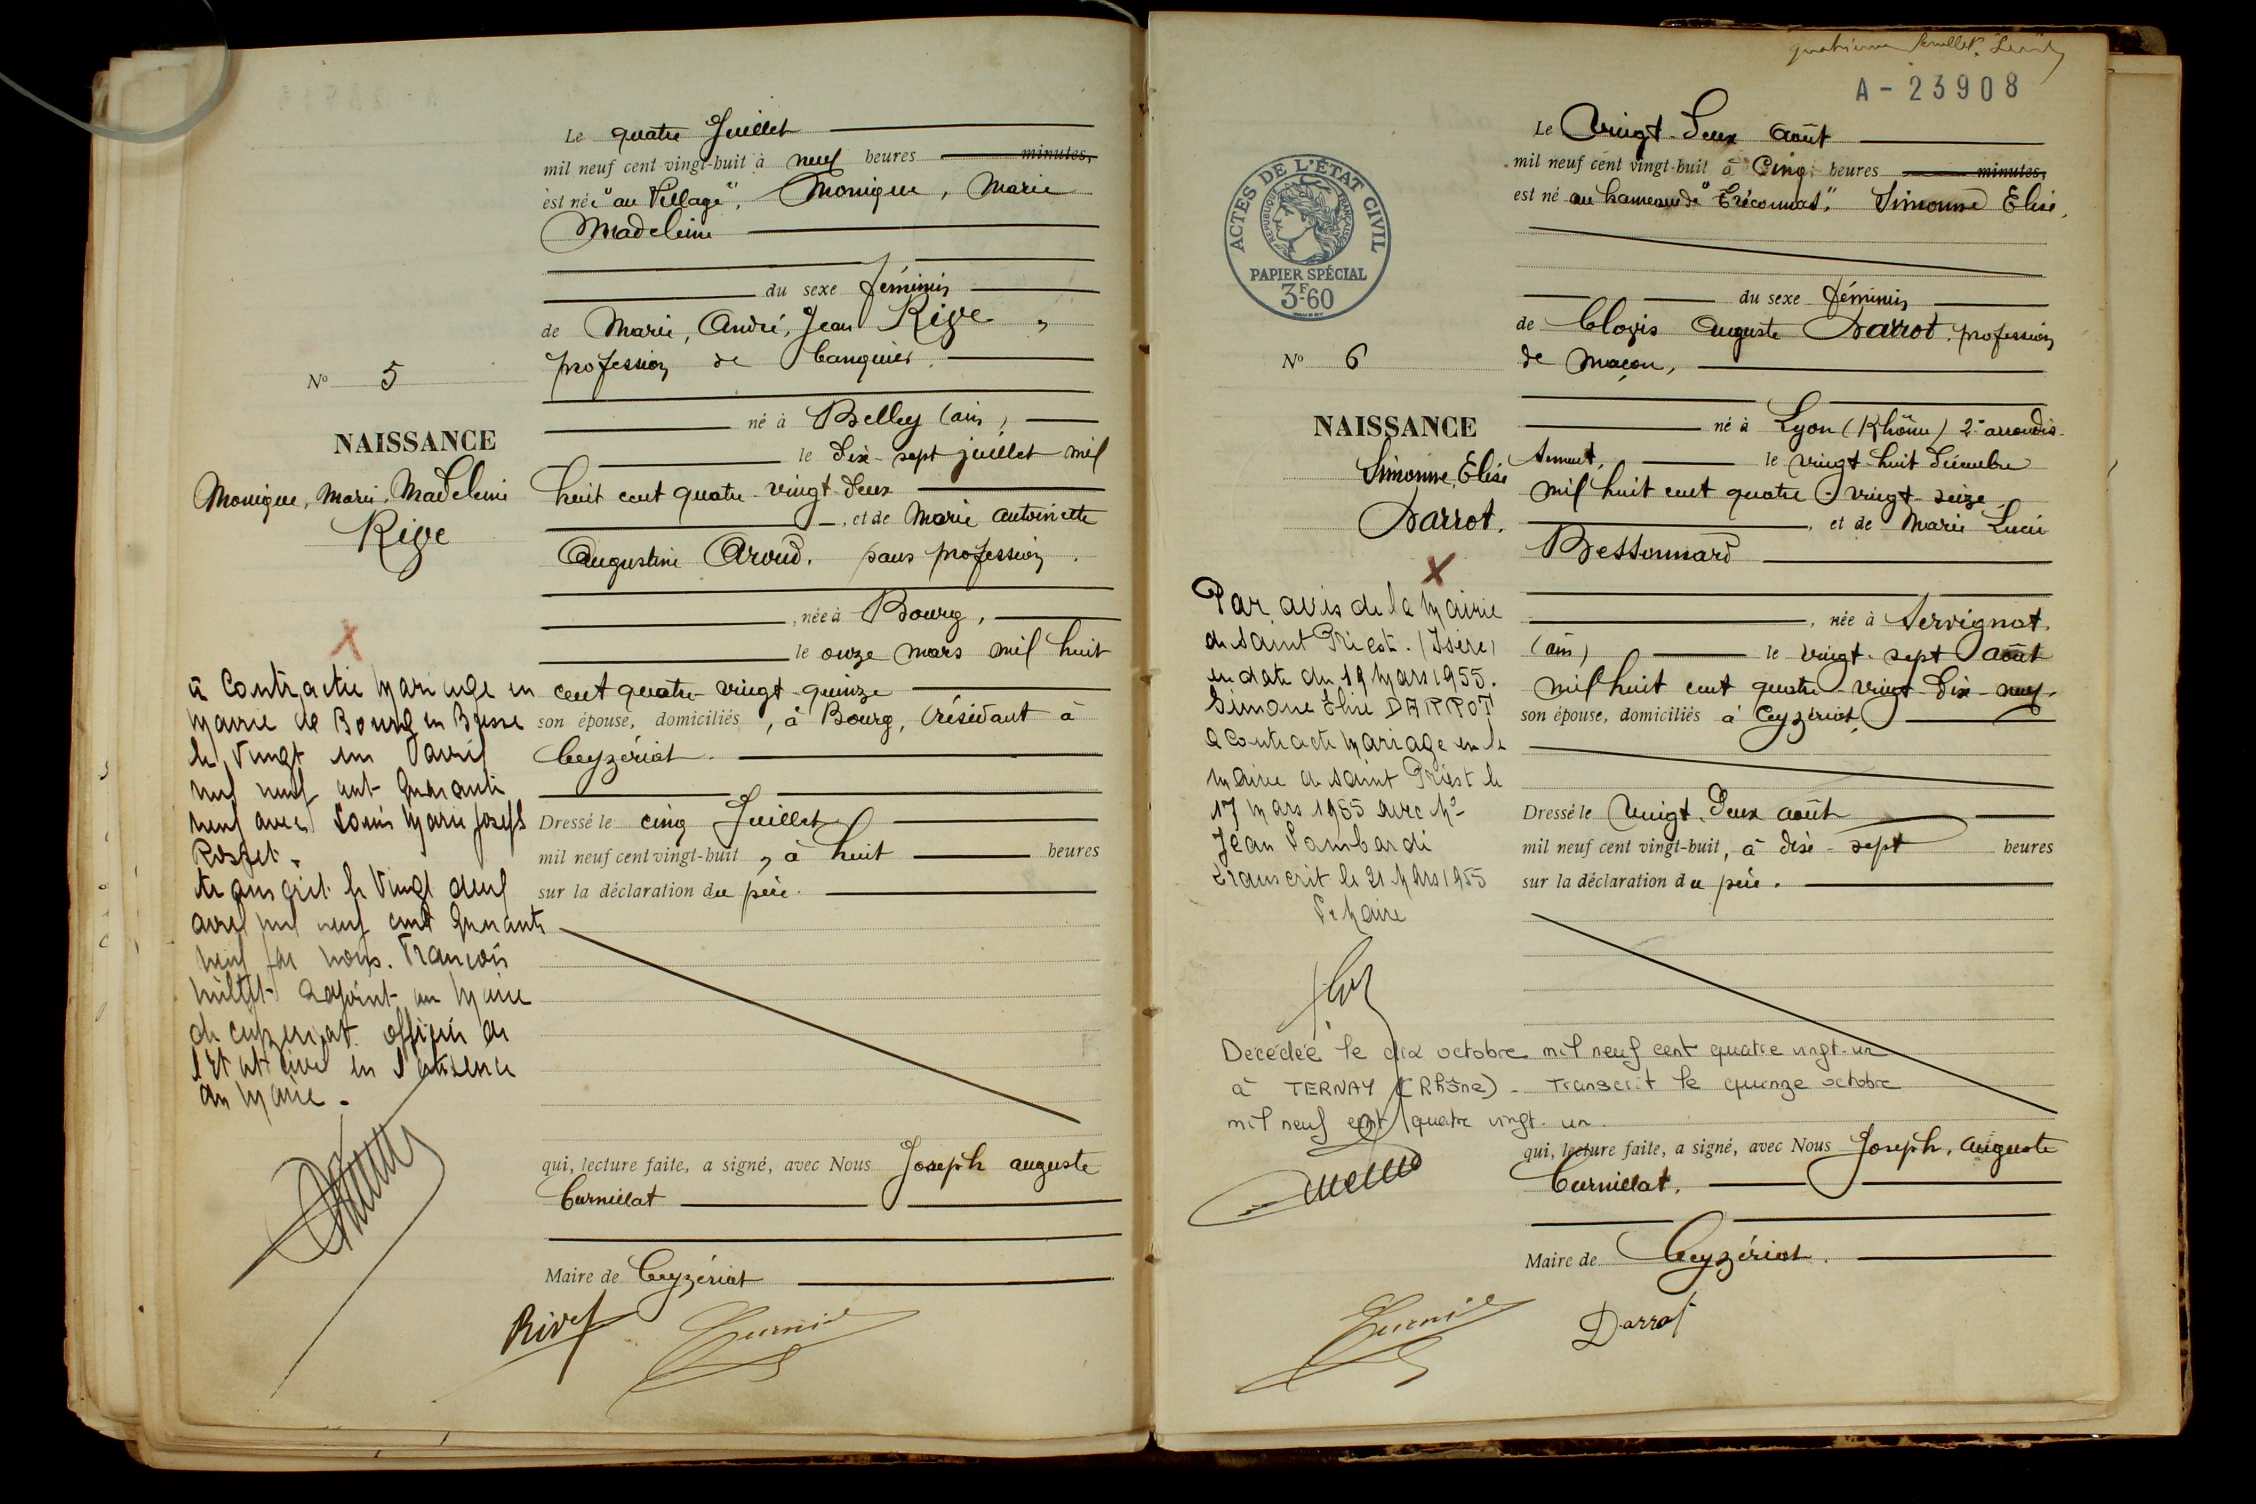 Le quatre Juillet
mil neuf cent vingt-huit à neuf heures minutes,
est née "au Village", Monique, Marie
Madeleine
du sexe féminin
de Marie, André, Jean Rive,
profession de banquier.
né à Belley (ain)
le dix-sept juillet mil
huit cent quatre-vingt-deux
, et de Marie Antoinette
Augustine Aroud, sans profession.
, née à Bourg,
le onze mars mil huit
cent quatre-vingt-quinze
son épouse, domiciliés, à Bourg, (résidant à
Ceyzériat.
Dressé le cinq Juillet
mil neuf cent vingt-huit, à huit heures
sur la déclaration du père.
qui, lecture faite, a signé, avec Nous Joseph auguste
Curnillat
Maire de Ceyzériat
N° 5
NAISSANCE
Monique, Marie, Madeleine
Rive
X
a Contracté Mariage en
Mairie de Bourg en Bresse
le Vingt un avril
mil neuf cent quarante
neuf avec Louis Marie Joseph
transcrit le Vingt deux
avril mil neuf cent quarante
neuf par nous. François
Millet adjoint au Maire
de Ceyzeriat. officier de
l'état civil en l'absence
du Maire.
Rive
Curnil
A - 23908
Le Vingt-Deux août
mil neuf cent vingt-huit à Cinq heures minutes,
est né au hameau de "Tréconnas", Simonne Elise,
du sexe féminin
de Clovis Auguste Darrot, profession
de maçon,
né à Lyon (Rhône) 2e arrondis-
sement, le vingt-huit décembre
mil huit cent quatre-vingt-seize
, et de Marie Lucie
Bessonnard
, née à Servignat,
(ain) le vingt-sept août
mil huit cent quatre-vingt-dix-neuf,
son épouse, domiciliés à Ceyzériat,
Dressé le Vingt-Deux août
mil neuf cent vingt-huit, à dix-sept heures
sur la déclaration du père.
qui, lecture faite, a signé, avec Nous Joseph, Auguste
Curnillat,
Maire de Ceyzériat.
ACTES DE L'ÉTAT CIVIL
RÉPUBLIQUE FRANÇAISE
PAPIER SPÉCIAL
3F60
N° 6
NAISSANCE
Simonne, Elise
Darrot.
X
Par avis de la Mairie
de Saint Priest. (Isère)
en date du 19 Mars 1955.
Simone Elise DARROT
a contracté Mariage en la
Mairie de Saint Priest le
17 Mars 1955 avec Mr
Jean Lombardi
transcrit le 21 Mars 1955
Le Maire
Décédée le dix octobre mil neuf cent quatre vingt-un
à TERNAY (Rhône) - Transcrit le quinze octobre
mil neuf cent quatre vingt-un.
Curnil
Darrot